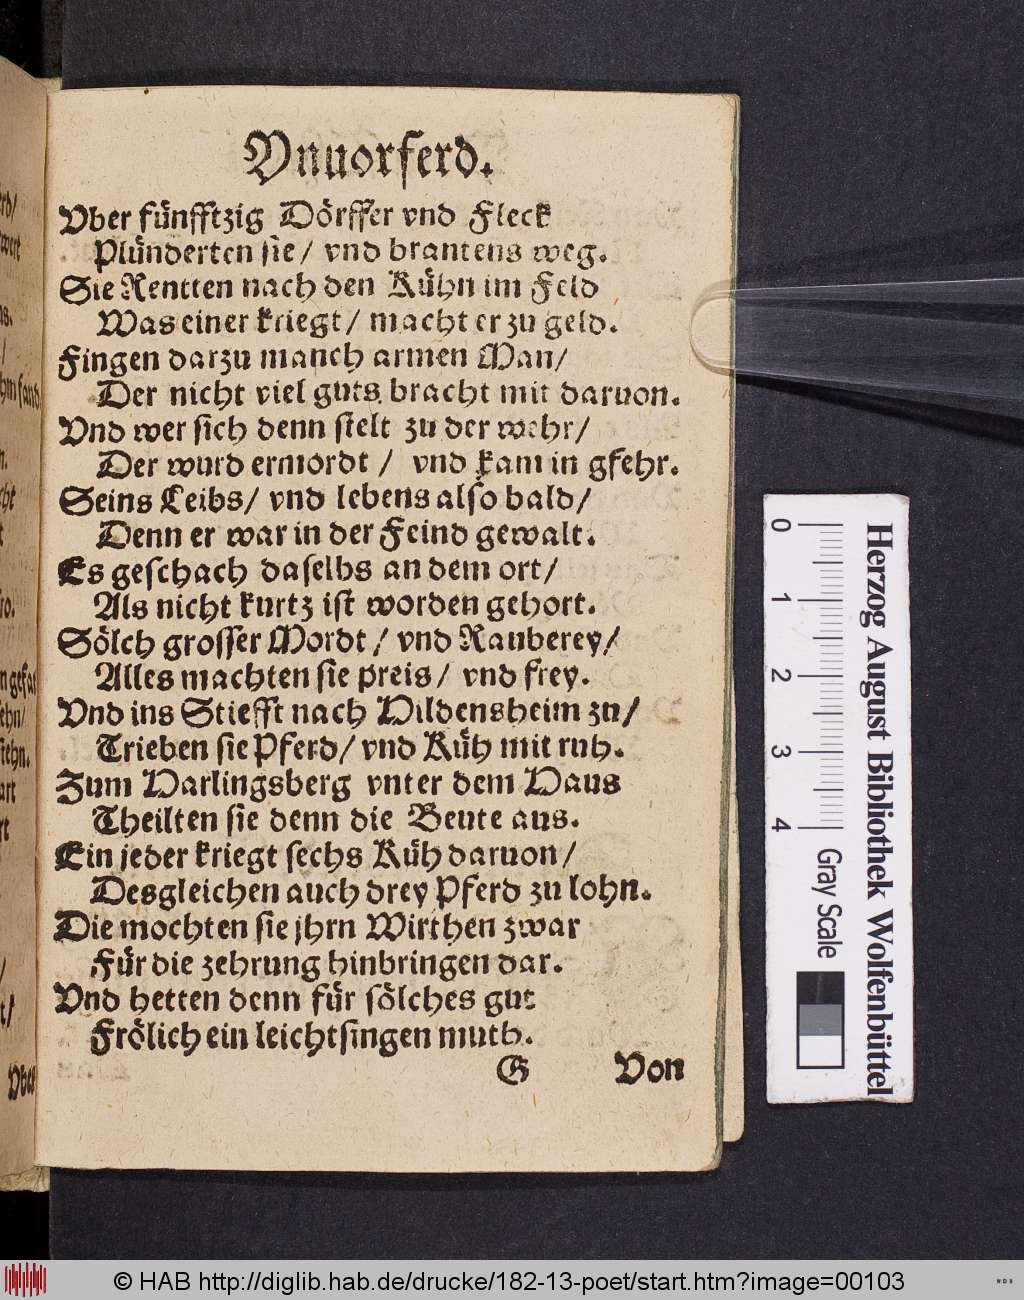 Vnuorferd.
Vber fünfftzig Dörffer vnd Fleck
Plünderten sie/ vnd brantens weg.
Sie Rentten nach den Kühn im Feld
Was einer kriegt/ macht er zu geld.
Fingen darzu manch armen Man/
Der nicht viel guts bracht mit daruon.
Vnd wer sich denn stelt zu der wehr/
Der wurd ermordt / vnd kam in gfehr.
Seins Leibs/ vnd lebens also bald/
Denn er war in der Feind gewalt.
Es geschach daselbs an dem ort/
Als nicht kurtz ist worden gehort.
Sölch grosser Mordt/ vnd Rauberey/
Alles machten sie preis/ vnd frey.
Vnd ins Stiefft nach Hildensheim zu/
Trieben sie Pferd/ vnd Küh mit ruh.
Zum Harlingsberg vnter dem Haus
Theilten sie denn die Beute aus.
Ein jeder kriegt sechs Küh daruon/
Desgleichen auch drey Pferd zu lohn.
Die mochten sie jhrn Wirthen zwar
Für die zehrung hinbringen dar.
Vnd hetten denn für sölches gut
Frölich ein leichtsingen muth.
G Von
Vber
Herzog August Bibliothek Wolfenbüttel
0 1 2 3 4 Gray Scale
© HAB http://diglib.hab.de/drucke/182-13-poet/start.htm?image=00103